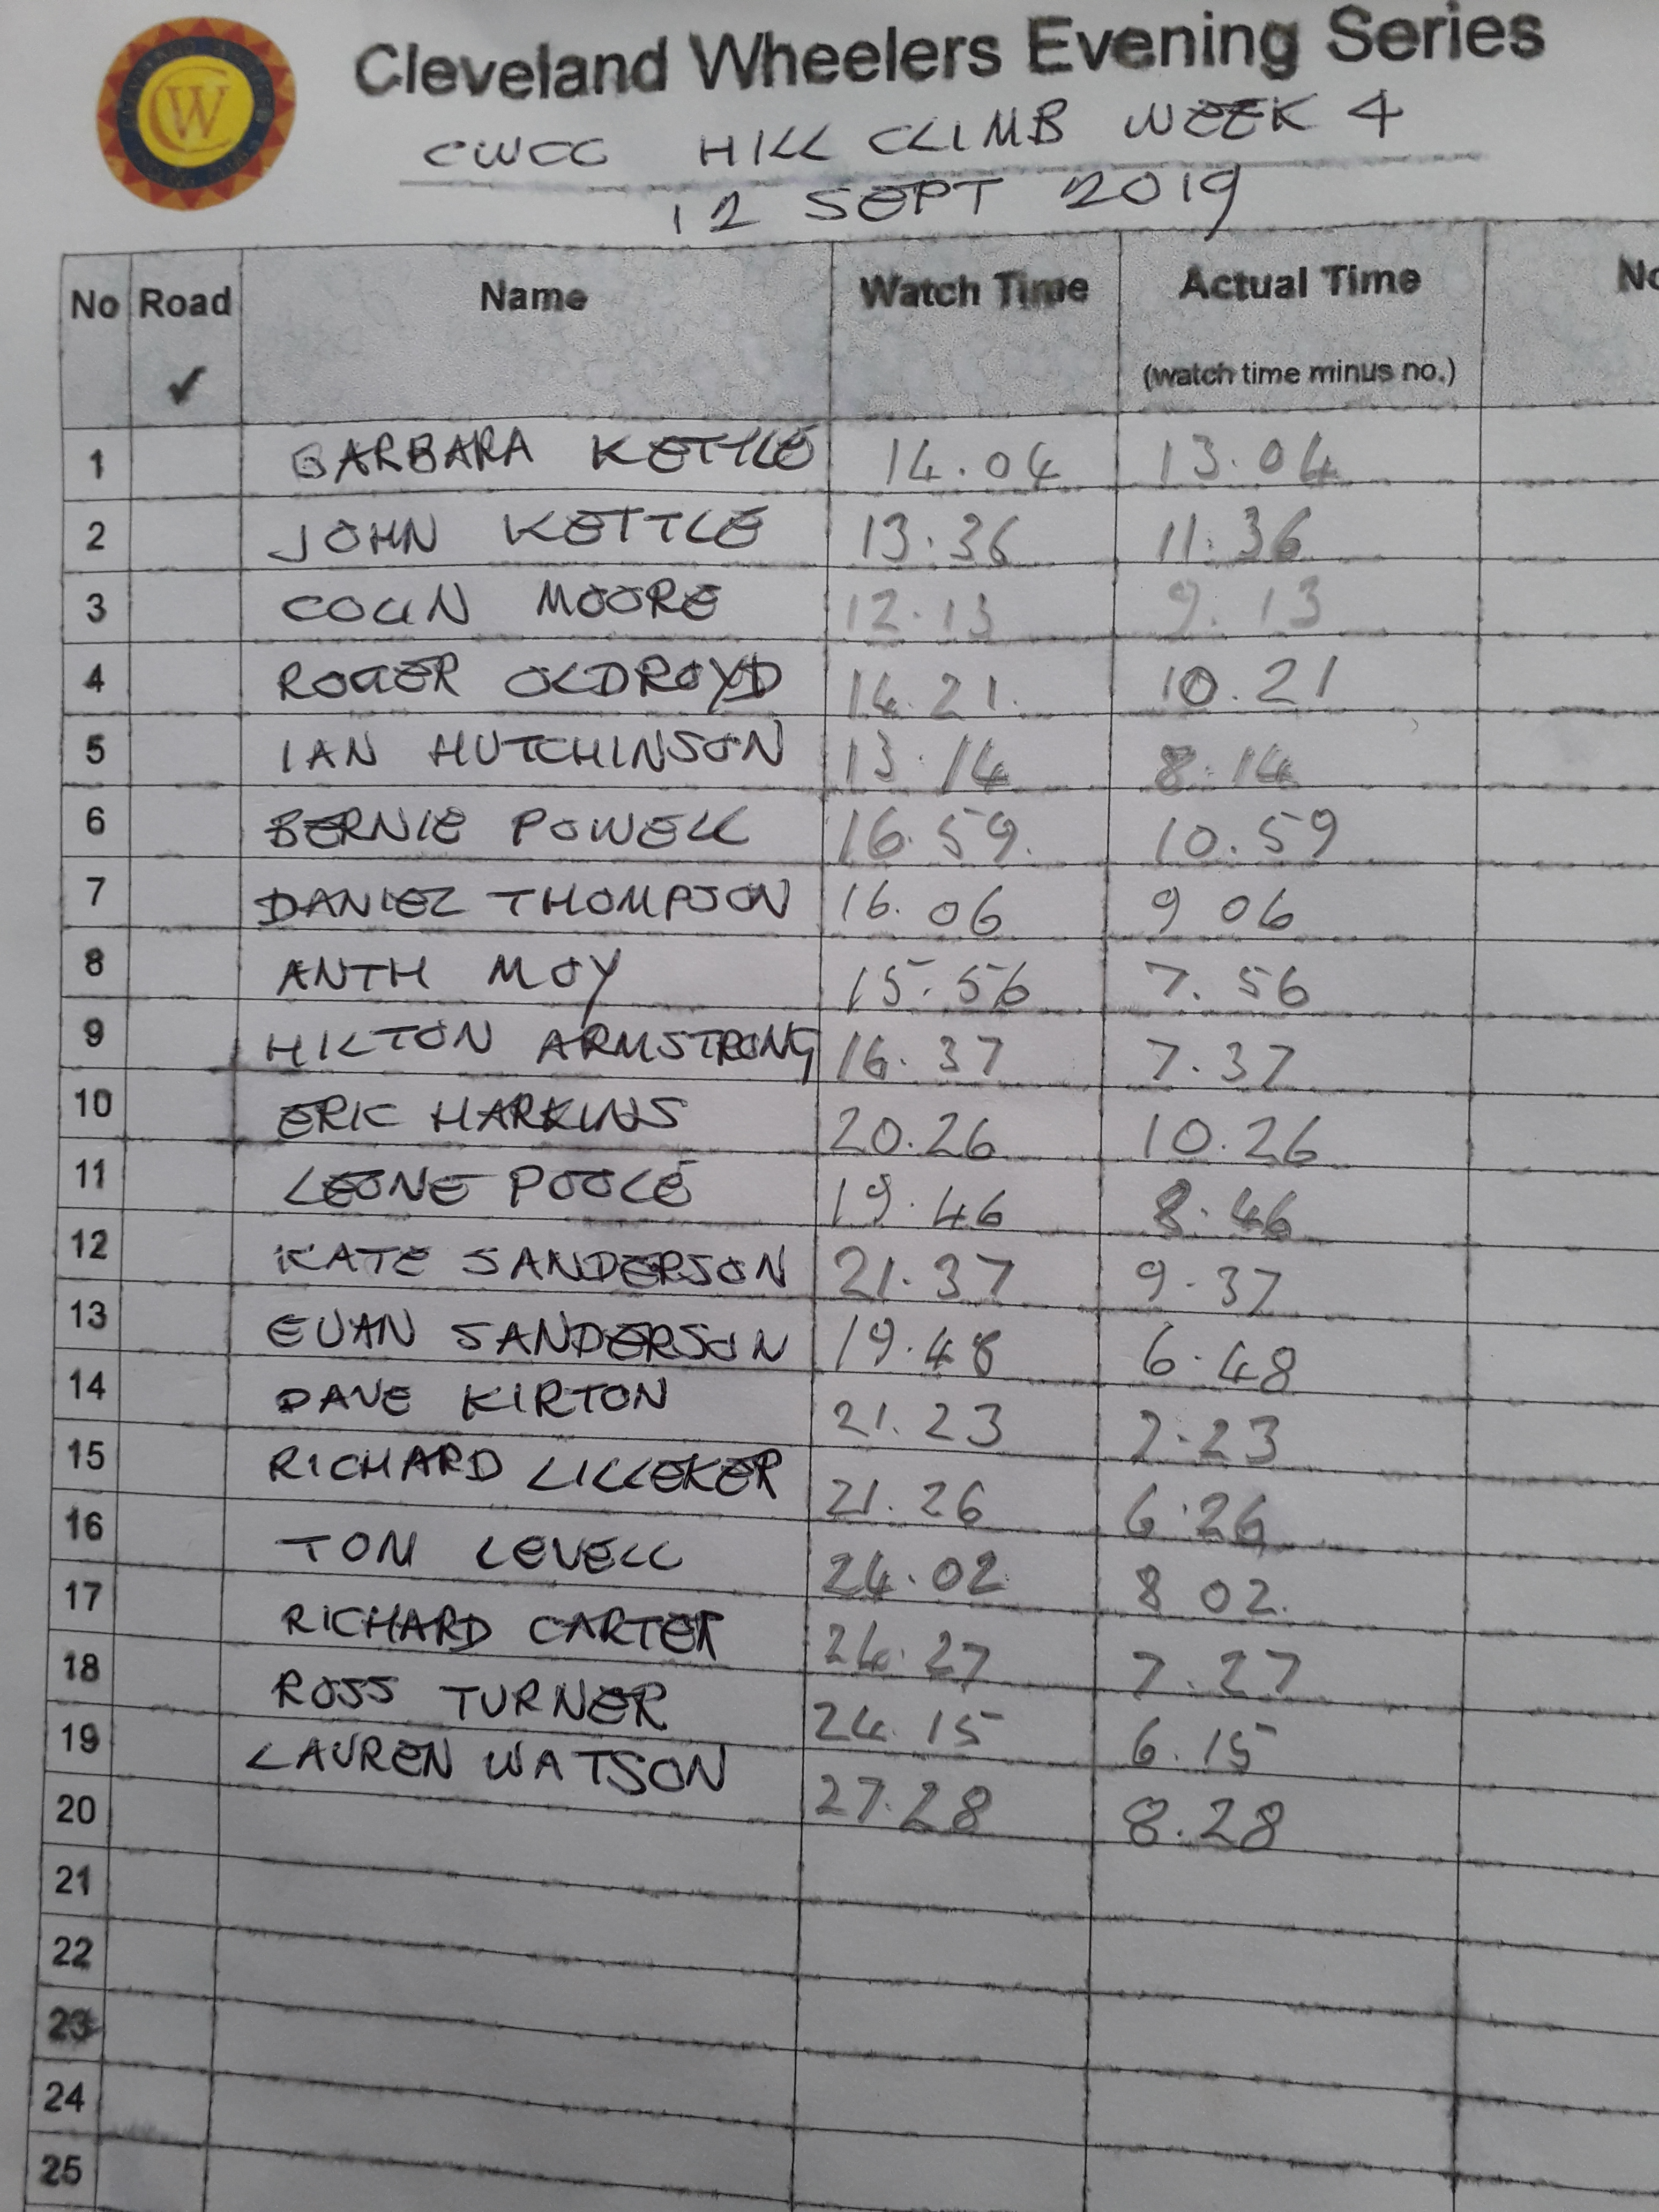 CW
Cleveland Wheelers Evening Series
CWCC HILL CLIMB WEEK 4
12 SEPT 2019
No Road Name Watch Time Actual Time No
✓ (watch time minus no.)
1 BARBARA KETTLE 14.04 13.04
2 JOHN KETTLE 13.36 11.36
3 COLIN MOORE 12.13 9.13
4 ROGER OLDROYD 14.21. 10.21
5 IAN HUTCHINSON 13.14 8.14
6 BERNIE POWELL 16.59. 10.59
7 DANIEL THOMPSON 16.06 9 06
8 ANTH MOY 15.56 7.56
9 HILTON ARMSTRONG 16.37 7.37
10 ERIC HARKINS 20.26 10.26
11 LEONE POOLE 19.46 8.46
12 KATE SANDERSON 21.37 9.37
13 EUAN SANDERSON 19.48 6.48
14 DAVE KIRTON 21.23 7.23
15 RICHARD LILLEKER 21.26 6.26
16 TOM LEVELL 24.02 8 02.
17 RICHARD CARTER 24.27 7.27
18 ROSS TURNER 24.15 6.15
19 LAUREN WATSON 27.28 8.28
20
21
22
23
24
25